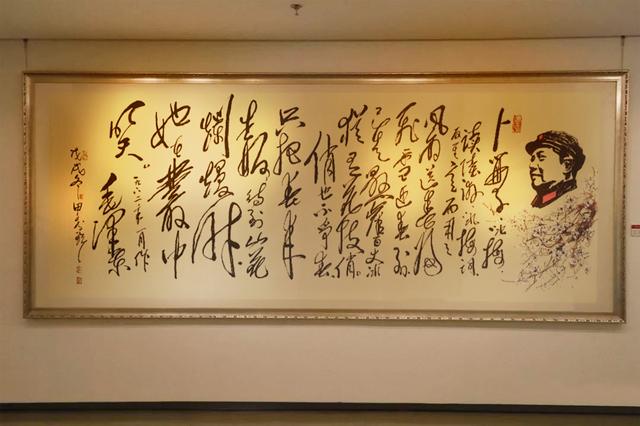 卜算子 咏梅
读陆游咏梅词
反其意而用之
风雨送春归
飞雪迎春到
已是悬崖百丈冰
犹有花枝俏
俏也不争春
只把春来
报 待到山花
烂熳时
她在丛中
笑
一九六二年一月作
毛泽东
戊戌冬日田